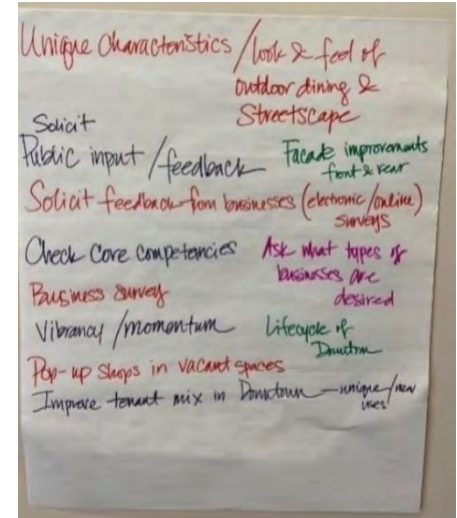 Unique Characteristics / look & feel of
outdoor dining &
Streetscape
Solicit
Public input / feedback
Facade improvements
front & rear
Solicit feedback from businesses (electronic/online)
surveys
Check Core competencies
Ask what types of
businesses are
desired
Business survey
Vibrancy / momentum
Lifecycle of
Downtown
Pop-up shops in vacant spaces
Improve tenant mix in Downtown — unique/new
uses